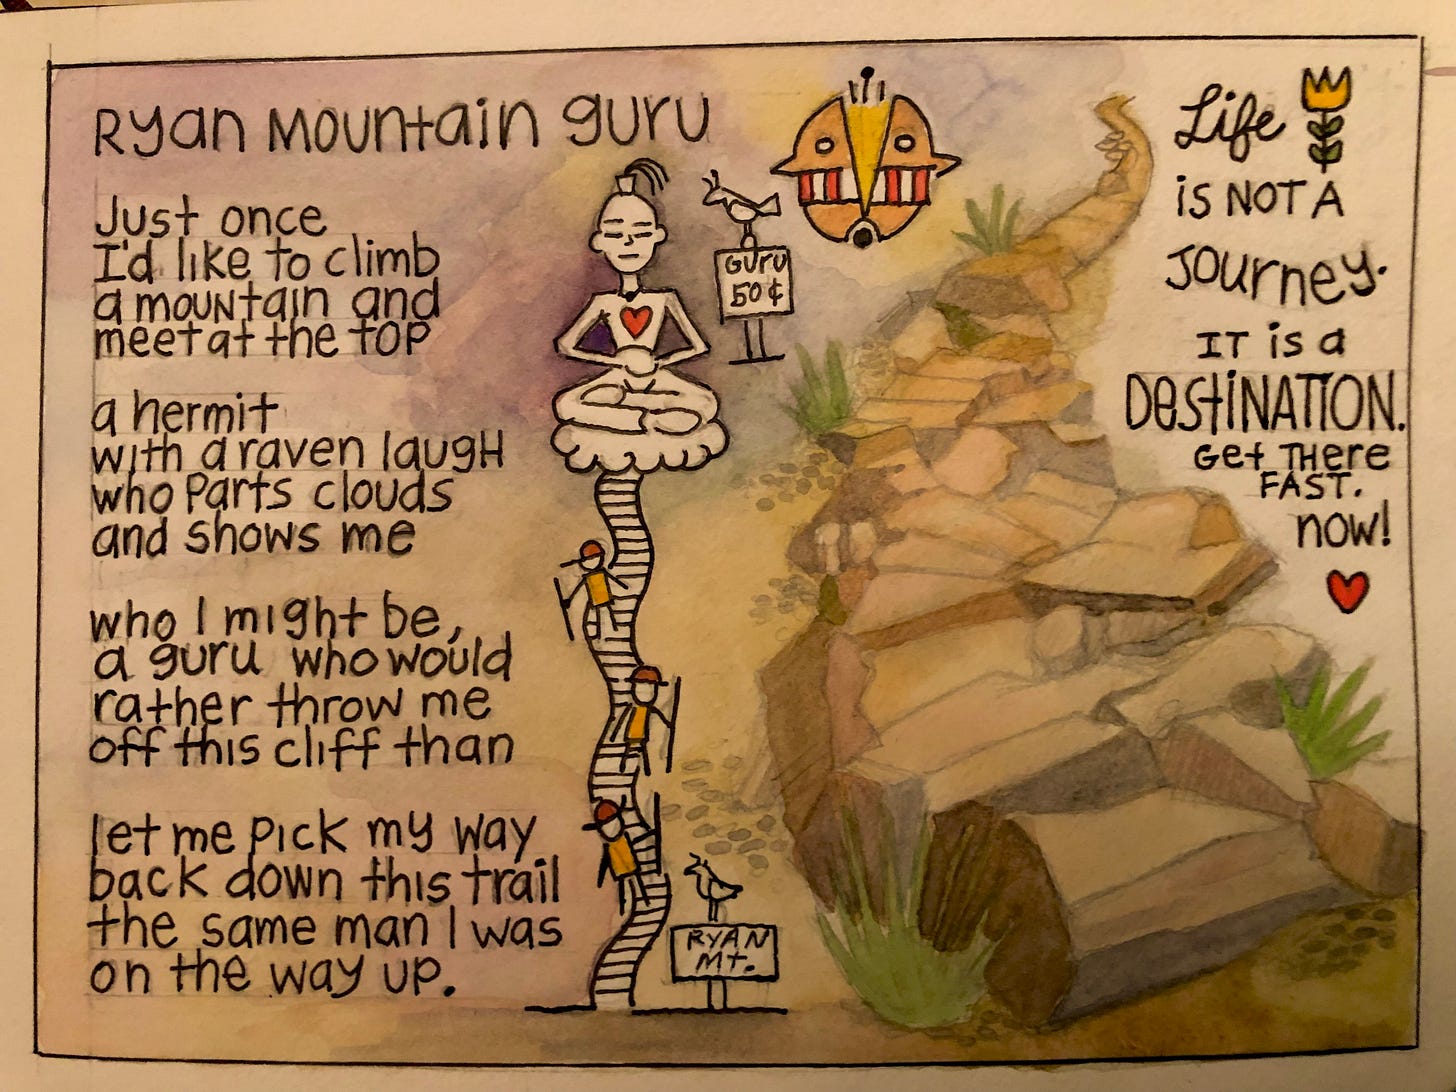 Ryan Mountain guru
Just once
I'd like to climb
a mountain and
meet at the top
a hermit
with a raven laugh
who parts clouds
and shows me
who I might be,
a guru who would
rather throw me
off this cliff than
let me pick my way
back down this trail
the same man I was
on the way up.
GURU
50¢
RYAN
MT.
Life
is NOT A
JOURNEY.
IT is a
DESTINATION.
Get THere
FAST.
now!